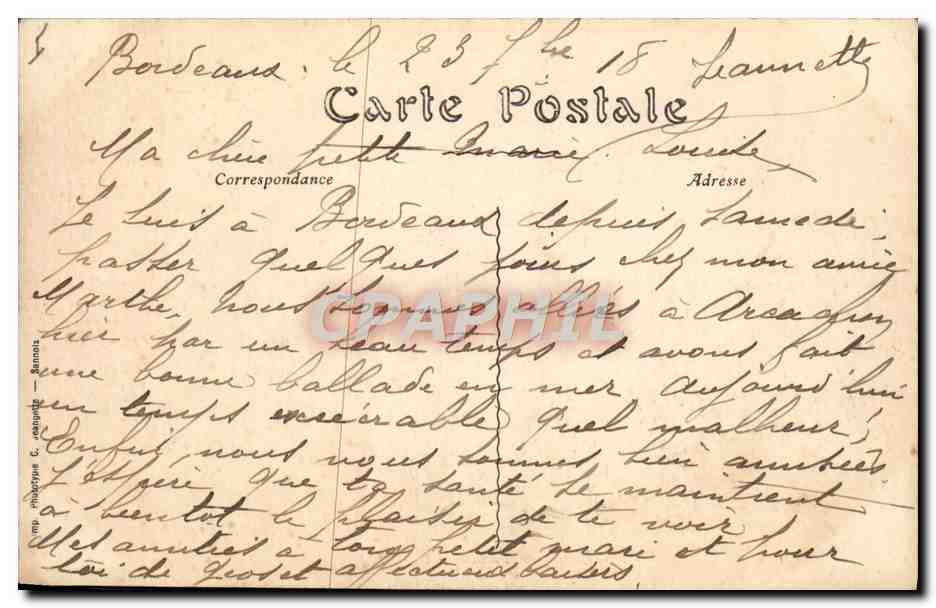 Bordeaux. le 23 7bre 18 Jeannette
Carte Postale
Ma chère petite Marie Louise
Correspondance
Adresse
Je suis à Bordeaux depuis samedi,
passer quelques jours chez mon amie
Marthe, nous sommes allées à Arcachon
hier par un beau temps et avons fait
une bonne ballade en mer aujourd'hui
un temps exécrable quel malheur!
Enfin, nous nous sommes bien amusées
J'espère que ta santé se maintient
à bientôt le plaisir de te voir
Mes amitiés à ton petit mari et pour
toi de gros et affectueux baisers
CPAPHIL
Imp. Phototypie C. Jeangette — Sannois